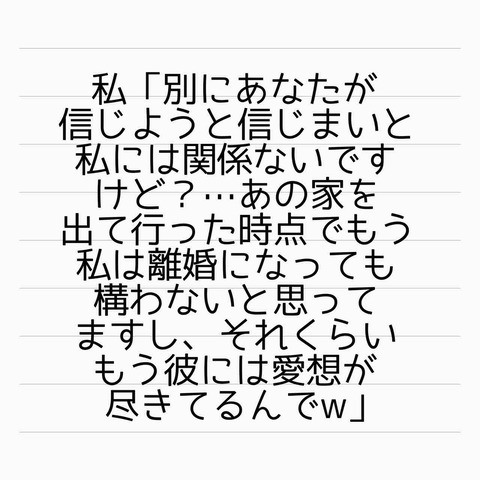 私「別にあなたが
信じようと信じまいと
私には関係ないです
けど？…あの家を
出て行った時点でもう
私は離婚になっても
構わないと思って
ますし、それくらい
もう彼には愛想が
尽きてるんでw」